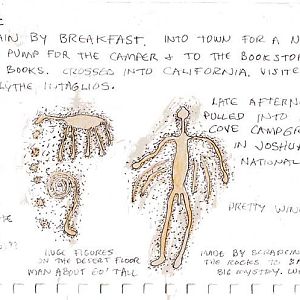 AIN BY BREAKFAST. INTO TOWN FOR A N
PUMP FOR THE CAMPER & TO THE BOOKSTO
BOOKS. CROSSED INTO CALIFORNIA. VISITE
LYTHE INTAGLIOS.
LATE AFTERN
PULLED INTO
COVE CAMPGR
IN JOSHUA
NATIONAL
PRETTY WIN
HE
HUGE FIGURES
ON THE DESERT FLOOR
MAN ABOUT 60' TALL
MADE BY SCRAPING
THE ROCKS TO BA
BIG MYSTERY. W